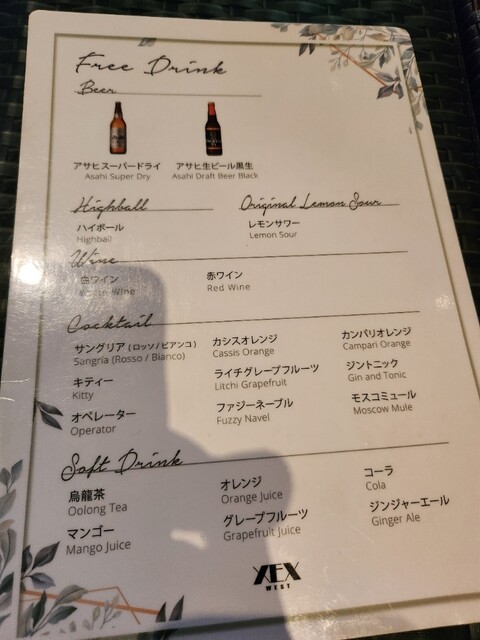 Free Drink
Beer
アサヒスーパードライ
Asahi Super Dry
アサヒ生ビール黒生
Asahi Draft Beer Black
Highball
ハイボール
Highball
Original Lemon Sour
レモンサワー
Lemon Sour
Wine
白ワイン
White Wine
赤ワイン
Red Wine
Cocktail
サングリア (ロッソ / ビアンコ)
Sangria (Rosso / Bianco)
カシスオレンジ
Cassis Orange
カンパリオレンジ
Campari Orange
キティー
Kitty
ライチグレープフルーツ
Litchi Grapefruit
ジントニック
Gin and Tonic
オペレーター
Operator
ファジーネーブル
Fuzzy Navel
モスコミュール
Moscow Mule
Soft Drink
烏龍茶
Oolong Tea
オレンジ
Orange Juice
コーラ
Cola
マンゴー
Mango Juice
グレープフルーツ
Grapefruit Juice
ジンジャーエール
Ginger Ale
XEX
WEST